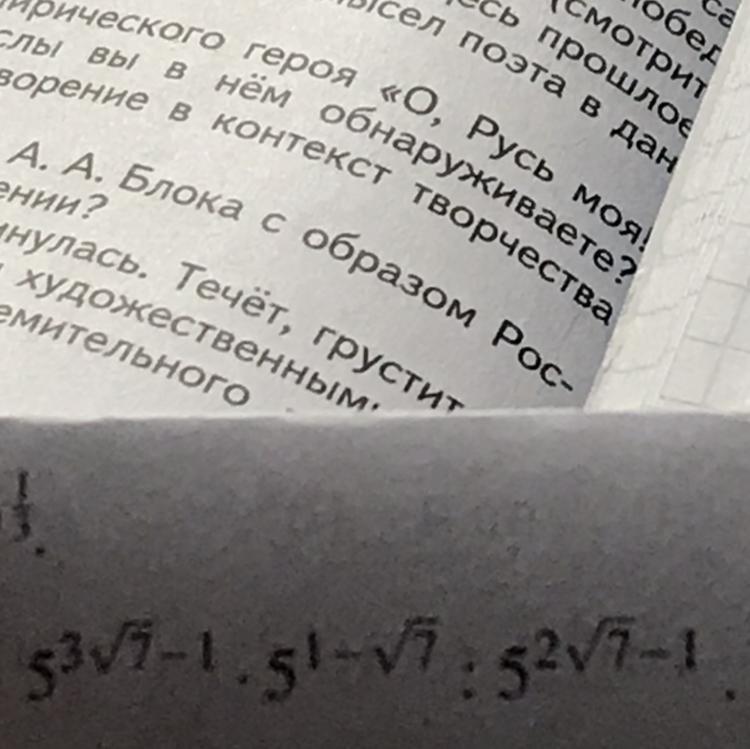 са
побед
(смотрит
есь прошлое
ысел поэта в дан
ирического героя «О, Русь моя!
слы вы в нём обнаруживаете?
ворение в контекст творчества
А. А. Блока с образом Рос-
ении?
нулась. Течёт, грустит
художественным
емительного
1/3.
5^{3√7−1} · 5^{1−√7} : 5^{2√7−1}.